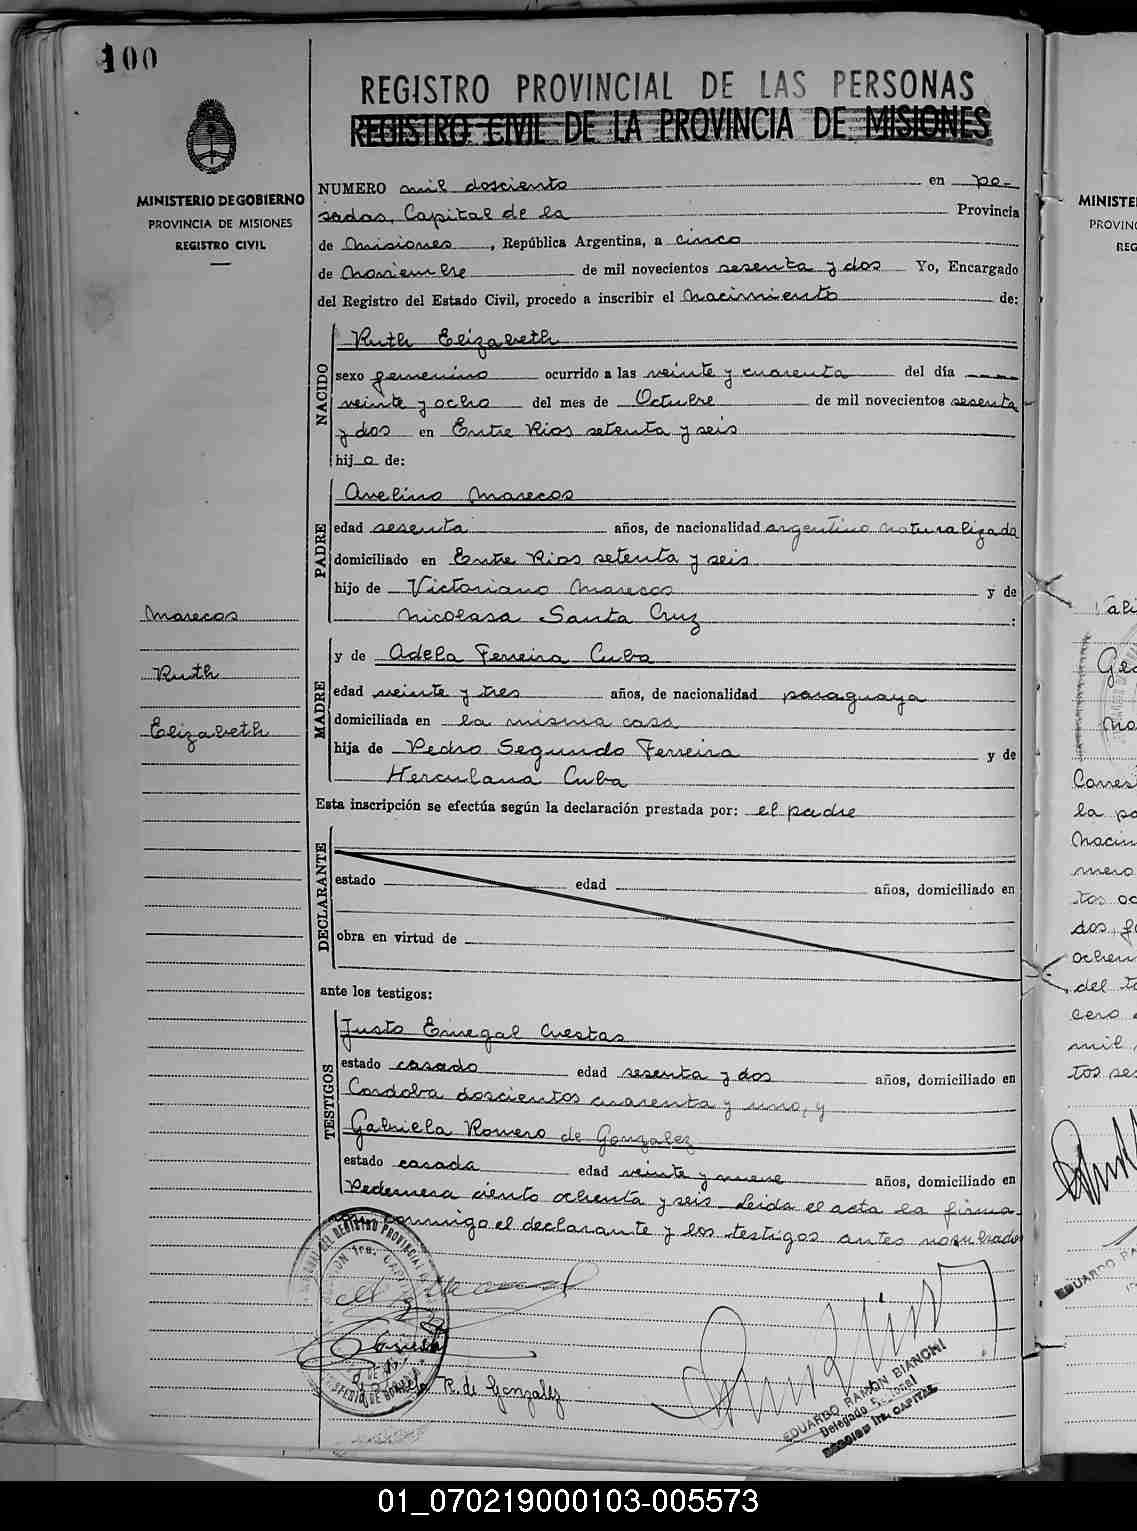 100
REGISTRO PROVINCIAL DE LAS PERSONAS
REGISTRO CIVIL DE LA PROVINCIA DE MISIONES
MINISTERIO DE GOBIERNO
PROVINCIA DE MISIONES
REGISTRO CIVIL
NUMERO mil dosciento en po-
sadas, Capital de la Provincia
de Misiones, República Argentina, a cinco
de Noviembre de mil novecientos sesenta y dos Yo, Encargado
del Registro del Estado Civil, procedo a inscribir el Nacimiento de:
NACIDO
Ruth Elizabeth
sexo femenino ocurrido a las veinte y cuarenta del día ----
veinte y ocho del mes de Octubre de mil novecientos sesenta
y dos en Entre Rios setenta y seis
hij a de:
PADRE
Avelino Marecos
edad sesenta años, de nacionalidad argentino naturalizado
domiciliado en Entre Rios setenta y seis
hijo de Victoriano Marecos y de
Nicolasa Santa Cruz :
MADRE
y de Adela Ferreira Cuba
edad veinte y tres años, de nacionalidad paraguaya
domiciliada en la misma casa
hija de Pedro Segundo Ferreira y de
Herculana Cuba
Marecos
Ruth
Elizabeth
Esta inscripción se efectúa según la declaración prestada por: el padre
DECLARANTE
estado edad años, domiciliado en
obra en virtud de
ante los testigos:
TESTIGOS
Justo Cuestas
estado casado edad sesenta y dos años, domiciliado en
Cordoba doscientos cuarenta y uno, y
Gabriela Romero de Gonzalez
estado casada edad veinte y nueve años, domiciliado en
Pedernera ciento ochenta y seis. Leida el acta la firma-
conmigo el declarante y los testigos antes nombrados
R. de Gonzalez
EDUARDO RAMON BIANCHI
Delegado
1ra. CAPITAL
MINISTE
PROVINC
REG
Geo
Corres
la po
Nacim
mero
tos oc
dos, fo
ochen
del to
cero
mil
tos ses
EDUARDO RA
01_070219000103-005573